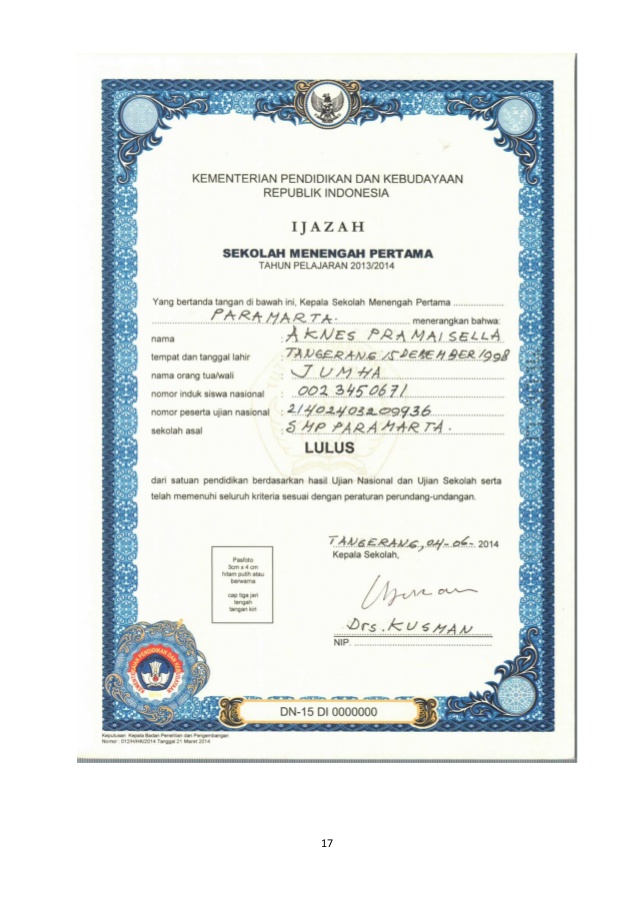 KEMENTERIAN PENDIDIKAN DAN KEBUDAYAAN
REPUBLIK INDONESIA
IJAZAH
SEKOLAH MENENGAH PERTAMA
TAHUN PELAJARAN 2013/2014
Yang bertanda tangan di bawah ini, Kepala Sekolah Menengah Pertama ..................
PARAMARTA. menerangkan bahwa:
nama : AKNES PRAMAISELLA
tempat dan tanggal lahir : TANGERANG 15 DESEMBER 1998
nama orang tua/wali : JUMHA
nomor induk siswa nasional : 002 3450671
nomor peserta ujian nasional : 21402403209936
sekolah asal : SMP PARAMARTA.
LULUS
dari satuan pendidikan berdasarkan hasil Ujian Nasional dan Ujian Sekolah serta
telah memenuhi seluruh kriteria sesuai dengan peraturan perundang-undangan.
TANGERANG, 04-06- 2014
Kepala Sekolah,
Pasfoto
3cm x 4 cm
hitam putih atau
berwarna
cap tiga jari
tengah
tangan kiri
Drs. KUSMAN
NIP. ..................
KEMENTERIAN PENDIDIKAN DAN KEBUDAYAAN
DN-15 DI 0000000
Keputusan Kepala Badan Penelitian dan Pengembangan
Nomor : 012/H/HK/2014 Tanggal 21 Maret 2014
17